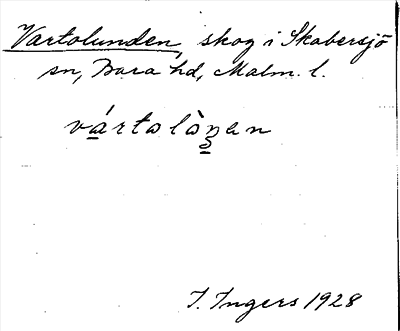 Vartolunden, skog i Skabersjö
sn, Bara hd, Malm. l.
vártolòŋen
I. Ingers 1928